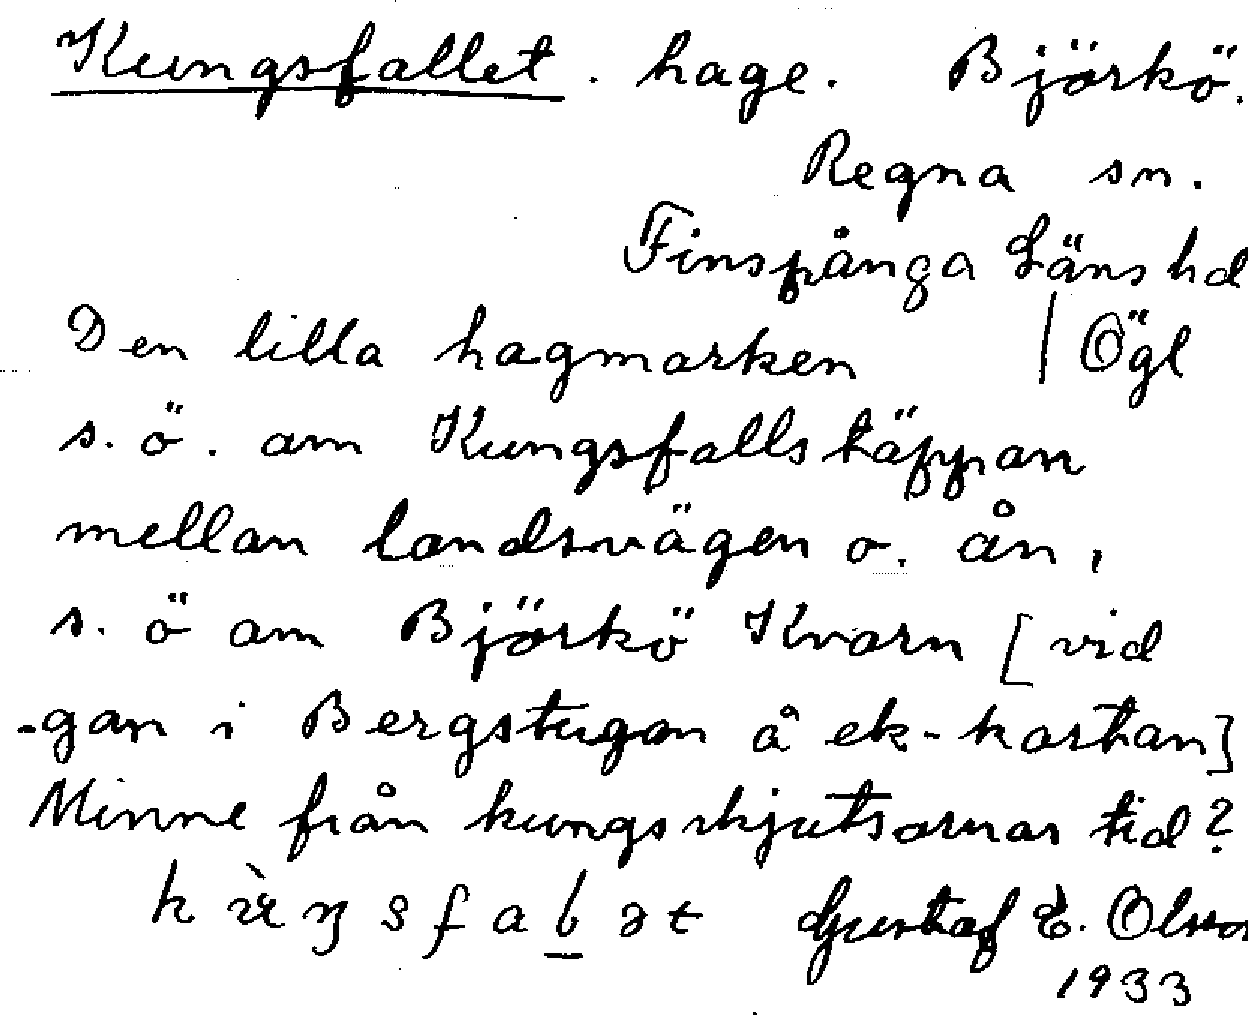 Kungsfallet. hage. Björkö.
Regna sn.
Finspånga Läns hd
Den lilla hagmarken | Ögl
s. ö. om Kungsfallstäppan
mellan landsvägen o. ån,
s. ö om Björkö Kvarn [vid
-gan i Bergstugan å ek-kartan]
Minne från kungsskjutsarnas tid?
Gustaf E. Olsson
1933